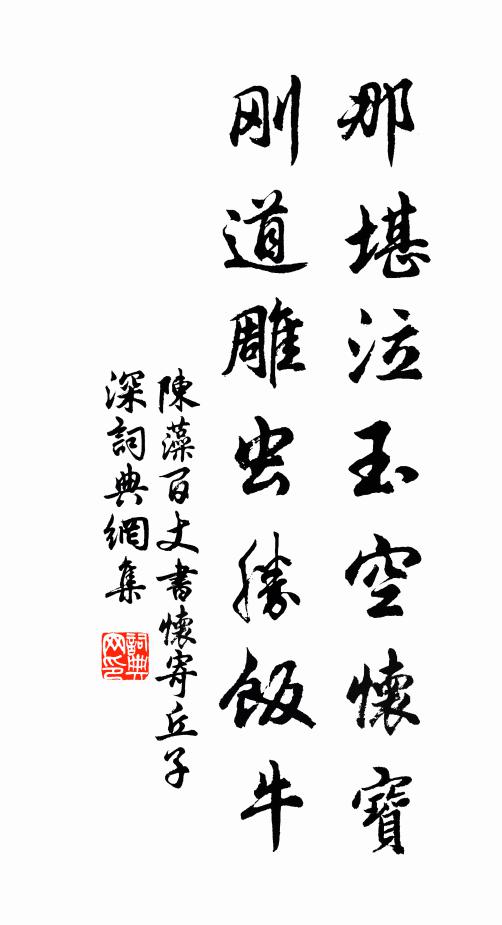 那堪泣玉空懷寶
刚道雕虫勝飯牛
陳藻百丈書懷寄丘子
深詞典網集
詞典
网印